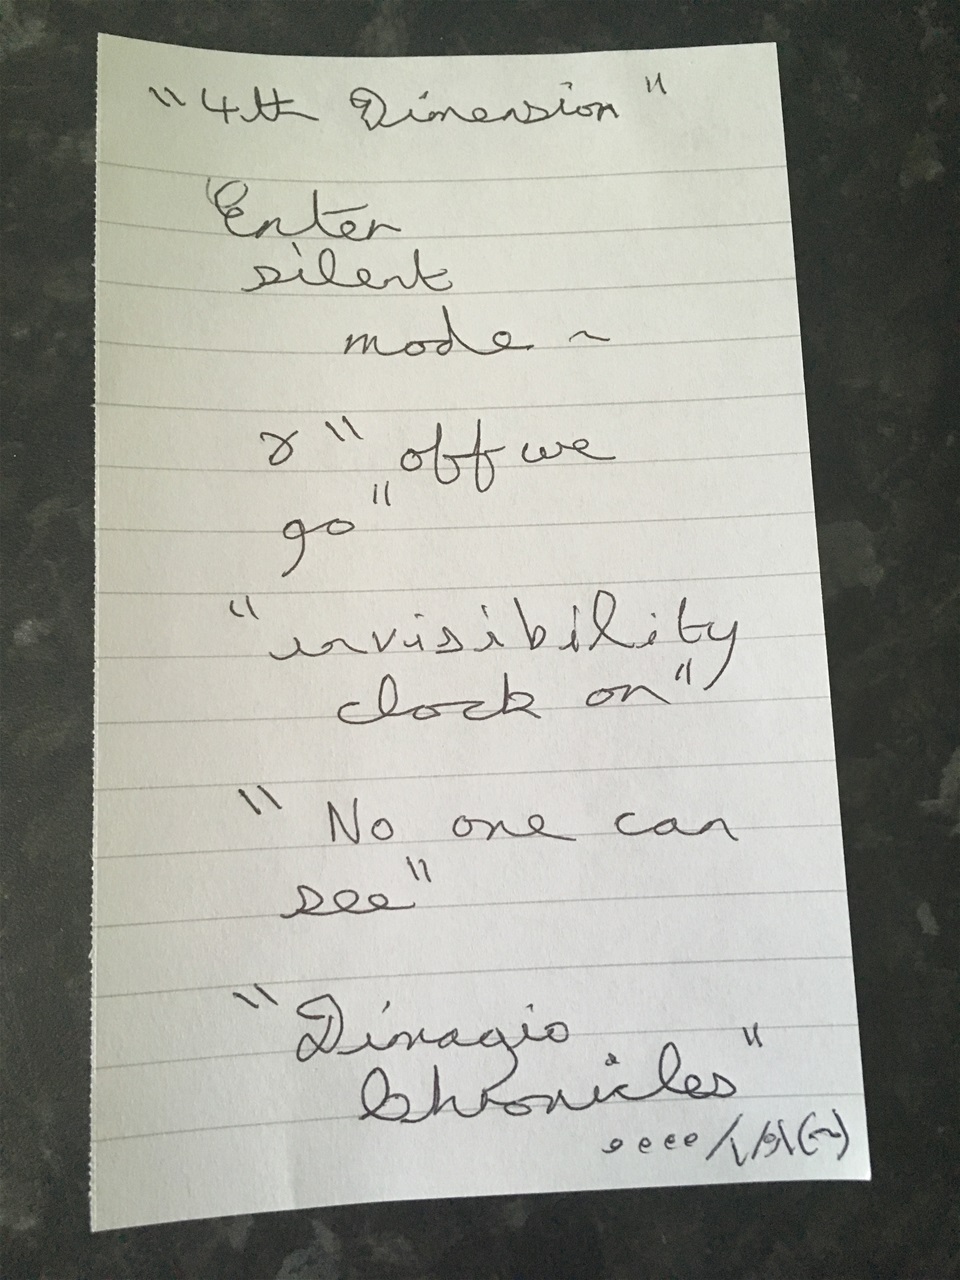 "4th Dimension"
Enter
silent
mode ~
"off we
go"
"invisibility
clock on"
"No one can
see"
"Dinagio
Chronicles"